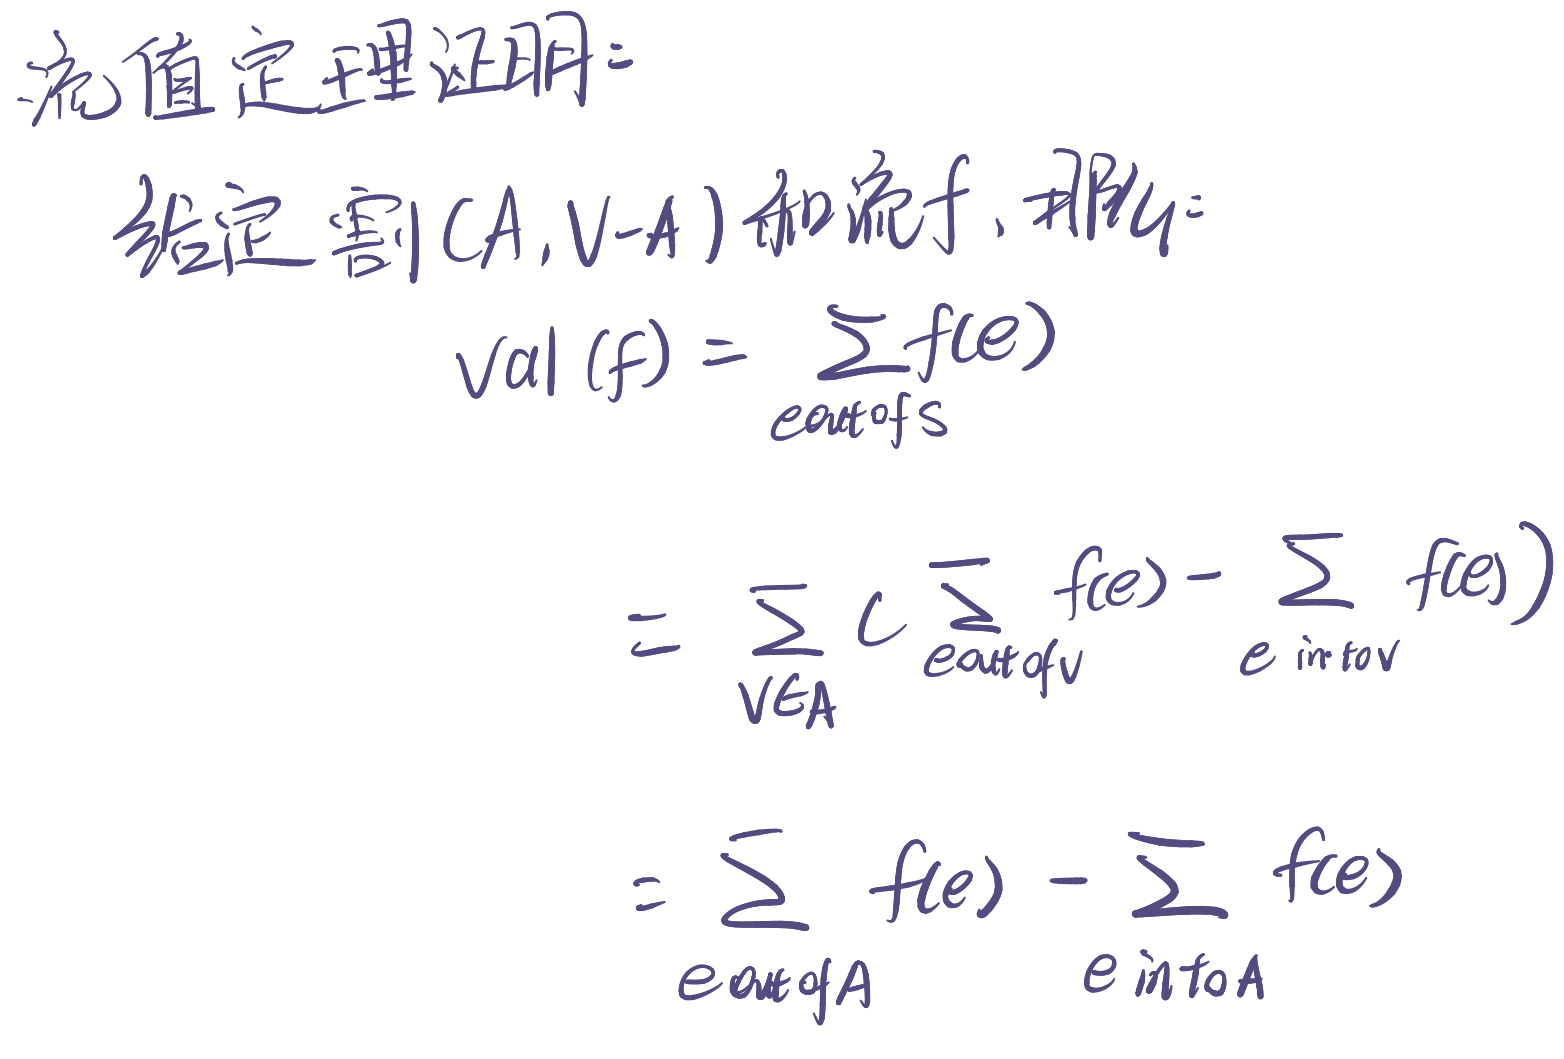 流值定理证明:
给定割(A, V-A)和流f、那么:
val(f) = ∑f(e)
e out of s
= ∑ ( ∑ f(e) - ∑ f(e))
v∈A e out of v e into v
= ∑ f(e) - ∑ f(e)
e out of A e into A